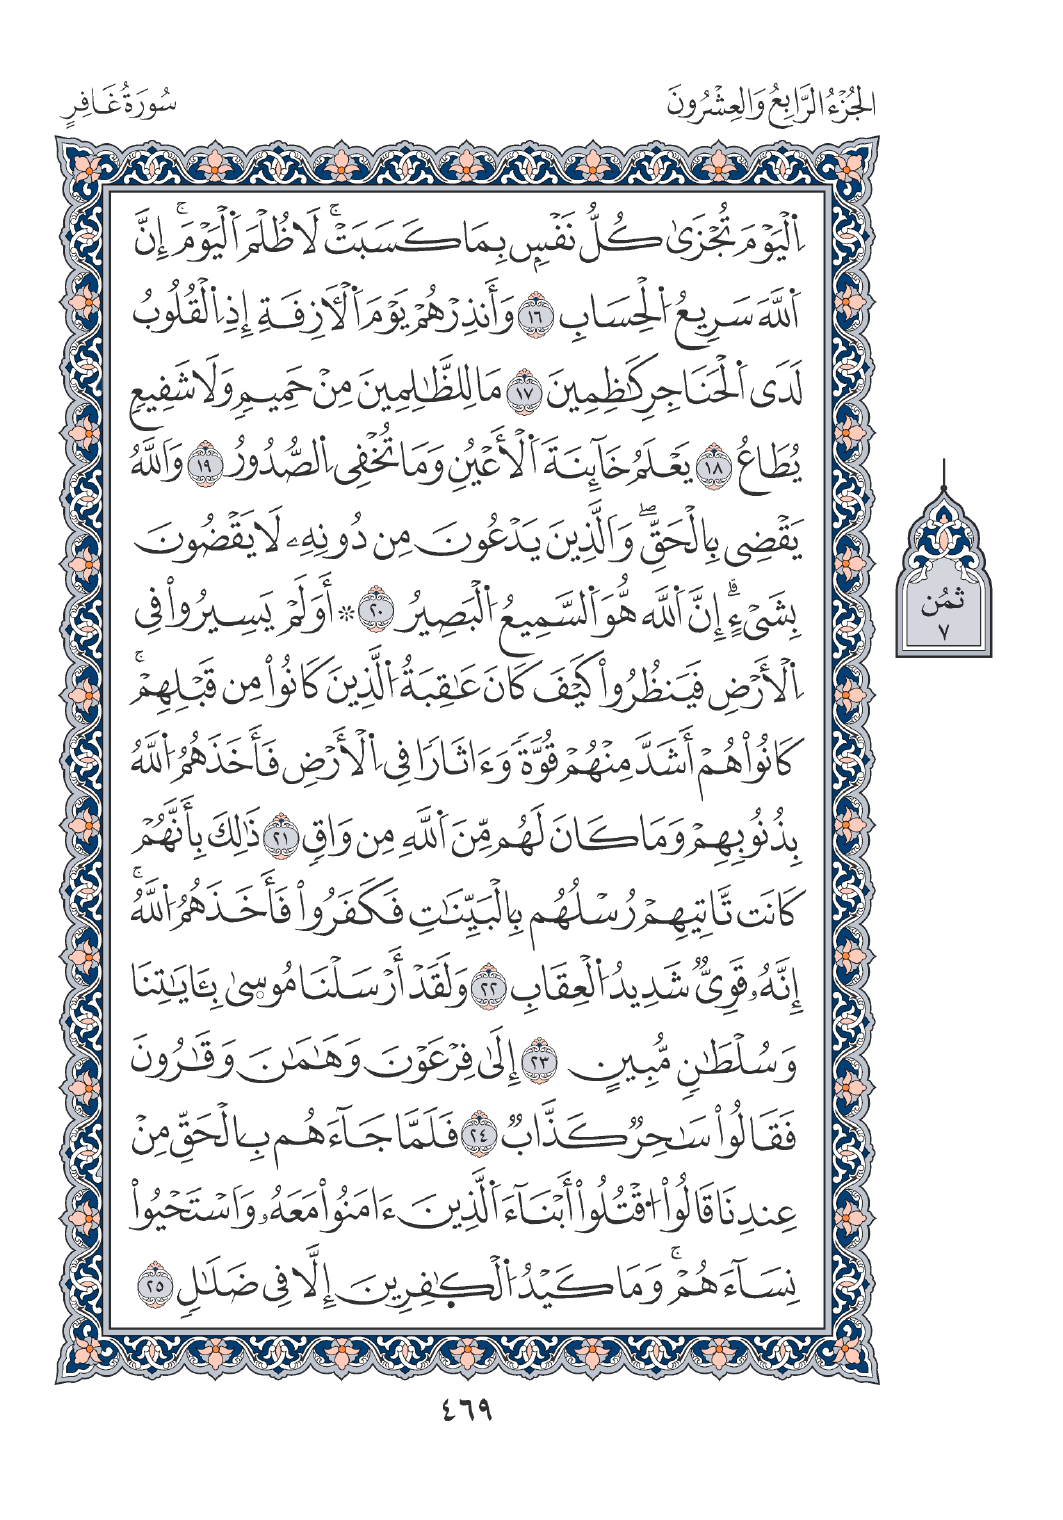 الجُزْءُ الرَّابِعُ وَالعِشْرُونَ
سُورَةُ غَافِرٍ
اِ۬لْيَوْمَ تُجْزَىٰ كُلُّ نَفْسِۢ بِمَا كَسَبَتْۚ لَا ظُلْمَ اَ۬لْيَوْمَۚ إِنَّ
اَ۬للَّهَ سَرِيعُ اُ۬لْحِسَابِ ١٦ وَأَنذِرْهُمْ يَوْمَ اَ۬لْأٓزِفَةِ إِذِ اِ۬لْقُلُوبُ
لَدَى اَ۬لْحَنَاجِرِ كَٰظِمِينَ ١٧ مَا لِلظَّٰلِمِينَ مِنْ حَمِيمٖ وَلَا شَفِيعٖ
يُطَاعُ ١٨ يَعْلَمُ خَآئِنَةَ اَ۬لْأَعْيُنِ وَمَا تُخْفِى اِ۬لصُّدُورُ ١٩ وَاَ۬للَّهُ
يَقْضِى بِالْحَقِّۖ وَاَ۬لَّذِينَ يَدْعُونَ مِن دُونِهِۦ لَا يَقْضُونَ
بِشَىْءٍۗ إِنَّ اَ۬للَّه هُّوَ اَ۬لسَّمِيعُ اُ۬لْبَصِيرُ ٢٠ ۞ أَوَلَمْ يَسِيرُواْ فِى
اِ۬لْأَرْضِ فَيَنظُرُواْ كَيْفَ كَانَ عَٰقِبَةُ اُ۬لَّذِينَ كَانُواْ مِن قَبْلِهِمْۚ
كَانُواْ هُمْ أَشَدَّ مِنْهُمْ قُوَّةٗ وَءَاثَارٗا فِى اِ۬لْأَرْضِ فَأَخَذَهُمُ اُ۬للَّهُ
بِذُنُوبِهِمْ وَمَا كَانَ لَهُم مِّنَ اَ۬للَّهِ مِن وَاقٖ ٢١ ذَٰلِكَ بِأَنَّهُمْ
كَانَت تَّاتِيهِمْ رُسْلُهُم بِالْبَيِّنَٰتِ فَكَفَرُواْ فَأَخَذَهُمُ اُ۬للَّهُۚ
إِنَّهُۥ قَوِىّٞ شَدِيدُ اُ۬لْعِقَابِ ٢٢ وَلَقَدْ أَرْسَلْنَا مُوسۭىٰ بِـَٔايَٰتِنَا
وَسُلْطَٰنٖ مُّبِينٍ ٢٣ إِلَىٰ فِرْعَوْنَ وَهَٰمَٰنَ وَقَٰرُونَ
فَقَالُواْ سَٰحِرٞ كَذَّابٞ ٢٤ فَلَمَّا جَآءَهُم بِالْحَقِّ مِنْ
عِندِنَا قَالُواْ اُ۟قْتُلُواْ أَبْنَآءَ اَ۬لَّذِينَ ءَامَنُواْ مَعَهُۥ وَاَسْتَحْيُواْ
نِسَآءَهُمْۚ وَمَا كَيْدُ اُ۬لْكٰ۪فِرِينَ إِلَّا فِى ضَلَٰلٖ ٢٥
ثمُن
٧
٤٦٩